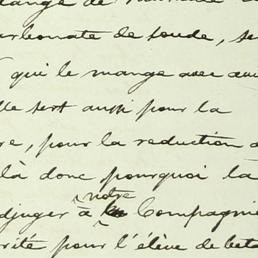 lange de
carbonate de soude, se
qui le mange avec
lle sert aussi pour la
re, pour la reduction d
là donc pourquoi la
notre
djuger à Compagnie
rité pour l'élève de beta